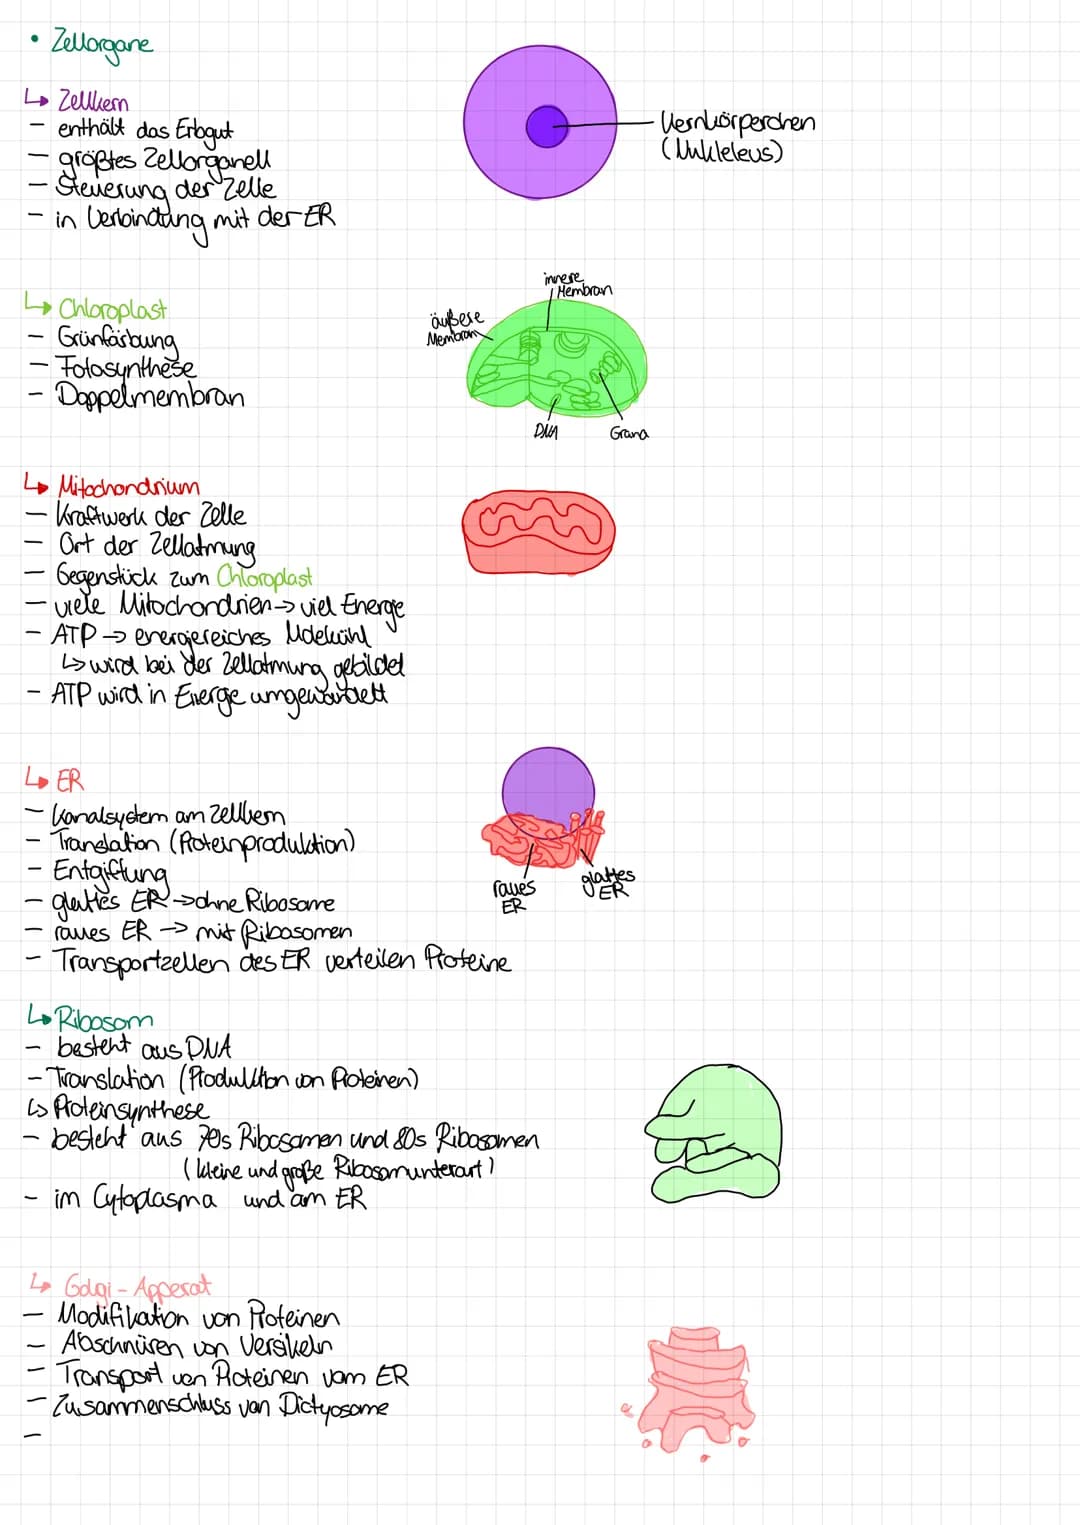 • Zellorgane
↳ Zellkern
– enthält das Erbgut
– größtes Zellorganell
– Steuerung der Zelle
– in Verbindung mit der ER
Kernkörperchen
(Nukleleus)
↳ Chloroplast
– Grünfärbung
– Fotosynthese
– Doppelmembran
innere
Membran
äußere
Membran
DNA
Grana
↳ Mitochondrium
– Kraftwerk der Zelle
– Ort der Zellatmung
– Gegenstück zum Chloroplast
– viele Mitochondrien → viel Energe
– ATP → energiereiches Molekühl
↳ wird bei der Zellatmung gebildet
– ATP wird in Energe umgewandelt
↳ ER
– Kanalsystem am Zellkern
– Translation (Proteinproduktion)
– Entgiftung
– glattes ER → ohne Ribosome
– raues ER → mit Ribosomen
– Transportzellen des ER verteilen Proteine
raues
ER
glattes
ER
↳ Ribosom
– besteht aus DNA
– Translation (Produktion von Proteinen)
↳ Proteinsynthese
– besteht aus 70s Ribosomen und 80s Ribosomen
(kleine und große Ribosomunterart)
– im Cytoplasma und am ER
↳ Golgi-Apperat
– Modifikation von Proteinen
– Abschnüren von Versikeln
– Transport von Proteinen vom ER
– Zusammenschluss von Dictyosome
–